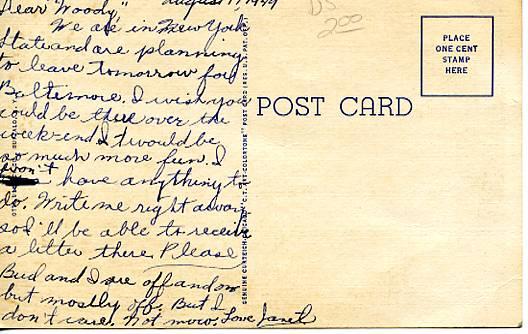 Dear "Woody",
August 1, 1949
We are in New York
State and are planning
to leave tomorrow for
Baltimore. I wish you
could be there over the
weekend. It would be
so much more fun. I
won't have anything to
do. Write me right away
so I'll be able to receive
a letter there. Please
Bud and I are off and on
but mostly off. But I
don't care. Not now. Love Janet
DS
2.00
PLACE
ONE CENT
STAMP
HERE
POST CARD